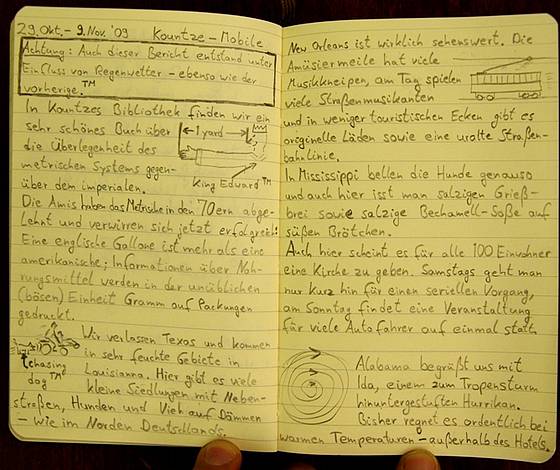 29. Okt. - 9. Nov. '09 Kountze - Mobile
Achtung: Auch dieser Bericht entstand unter
Einfluss von Regenwetter - ebenso wie der
vorherige.™
In Kountzes Bibliothek finden wir ein
sehr schönes Buch über
die Überlegenheit des
metrischen Systems gegen-
über dem imperialen.
1 yard
King Edward™
Die Amis haben das Metrische in den 70ern abge-
lehnt und verwirren sich jetzt erfolgreich:
Eine englische Gallone ist mehr als eine
amerikanische; Informationen über Nah-
rungsmittel werden in der unüblichen
(bösen) Einheit Gramm auf Packungen
gedruckt.
Wir verlassen Texas und kommen
in sehr feuchte Gebiete in
Louisianna. Hier gibt es viele
kleine Siedlungen mit Neben-
chasing
dog™
straßen, Hunden und Vieh auf Dämmen
- wie im Norden Deutschlands.
New Orleans ist wirklich sehenswert. Die
Amüsiermeile hat viele
Musikkneipen, am Tag spielen
viele Straßenmusikanten
und in weniger touristischen Ecken gibt es
originelle Läden sowie eine uralte Straßen-
bahnlinie.
In Mississippi bellen die Hunde genauso
und auch hier isst man salzigen Grieß-
brei sowie salzige Bechamell-Soße auf
süßen Brötchen.
Auch hier scheint es für alle 100 Einwohner
eine Kirche zu geben. Samstags geht man
nur kurz hin für einen seriellen Vorgang,
am Sonntag findet eine Veranstaltung
für viele Autofahrer auf einmal statt.
Alabama begrüßt uns mit
Ida, einem zum Tropensturm
hinuntergestuften Hurrikan.
Bisher regnet es ordentlich bei
warmen Temperaturen - außerhalb des Hotels.